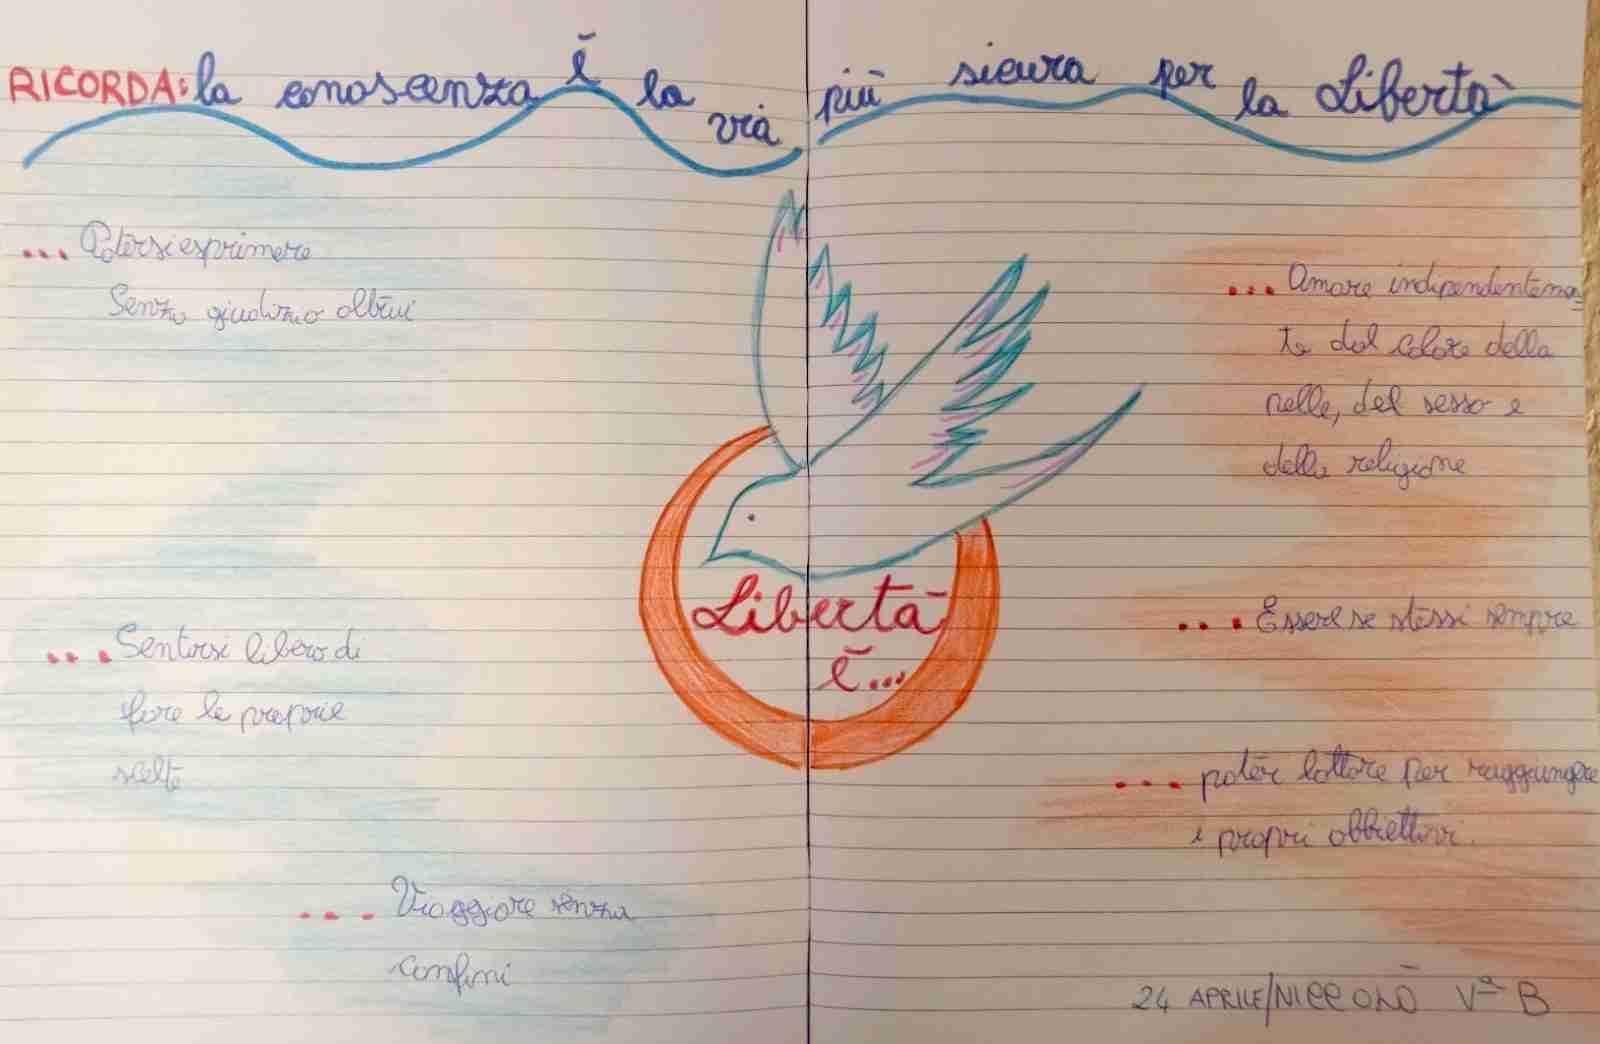 RICORDA: la conoscenza è la via più sicura per la Libertà
... Potersi esprimere
Senza giudizio altrui
... Sentirsi libero di
fare le proprie
scelte
... Viaggiare senza
confini
Libertà
è...
... Amare indipendentemen
te dal colore della
pelle, del sesso e
della religione
... Essere se stessi sempre
... poter lottare per raggiungere
i propri obbiettivi.
24 APRILE/NICCOLÒ Vª B